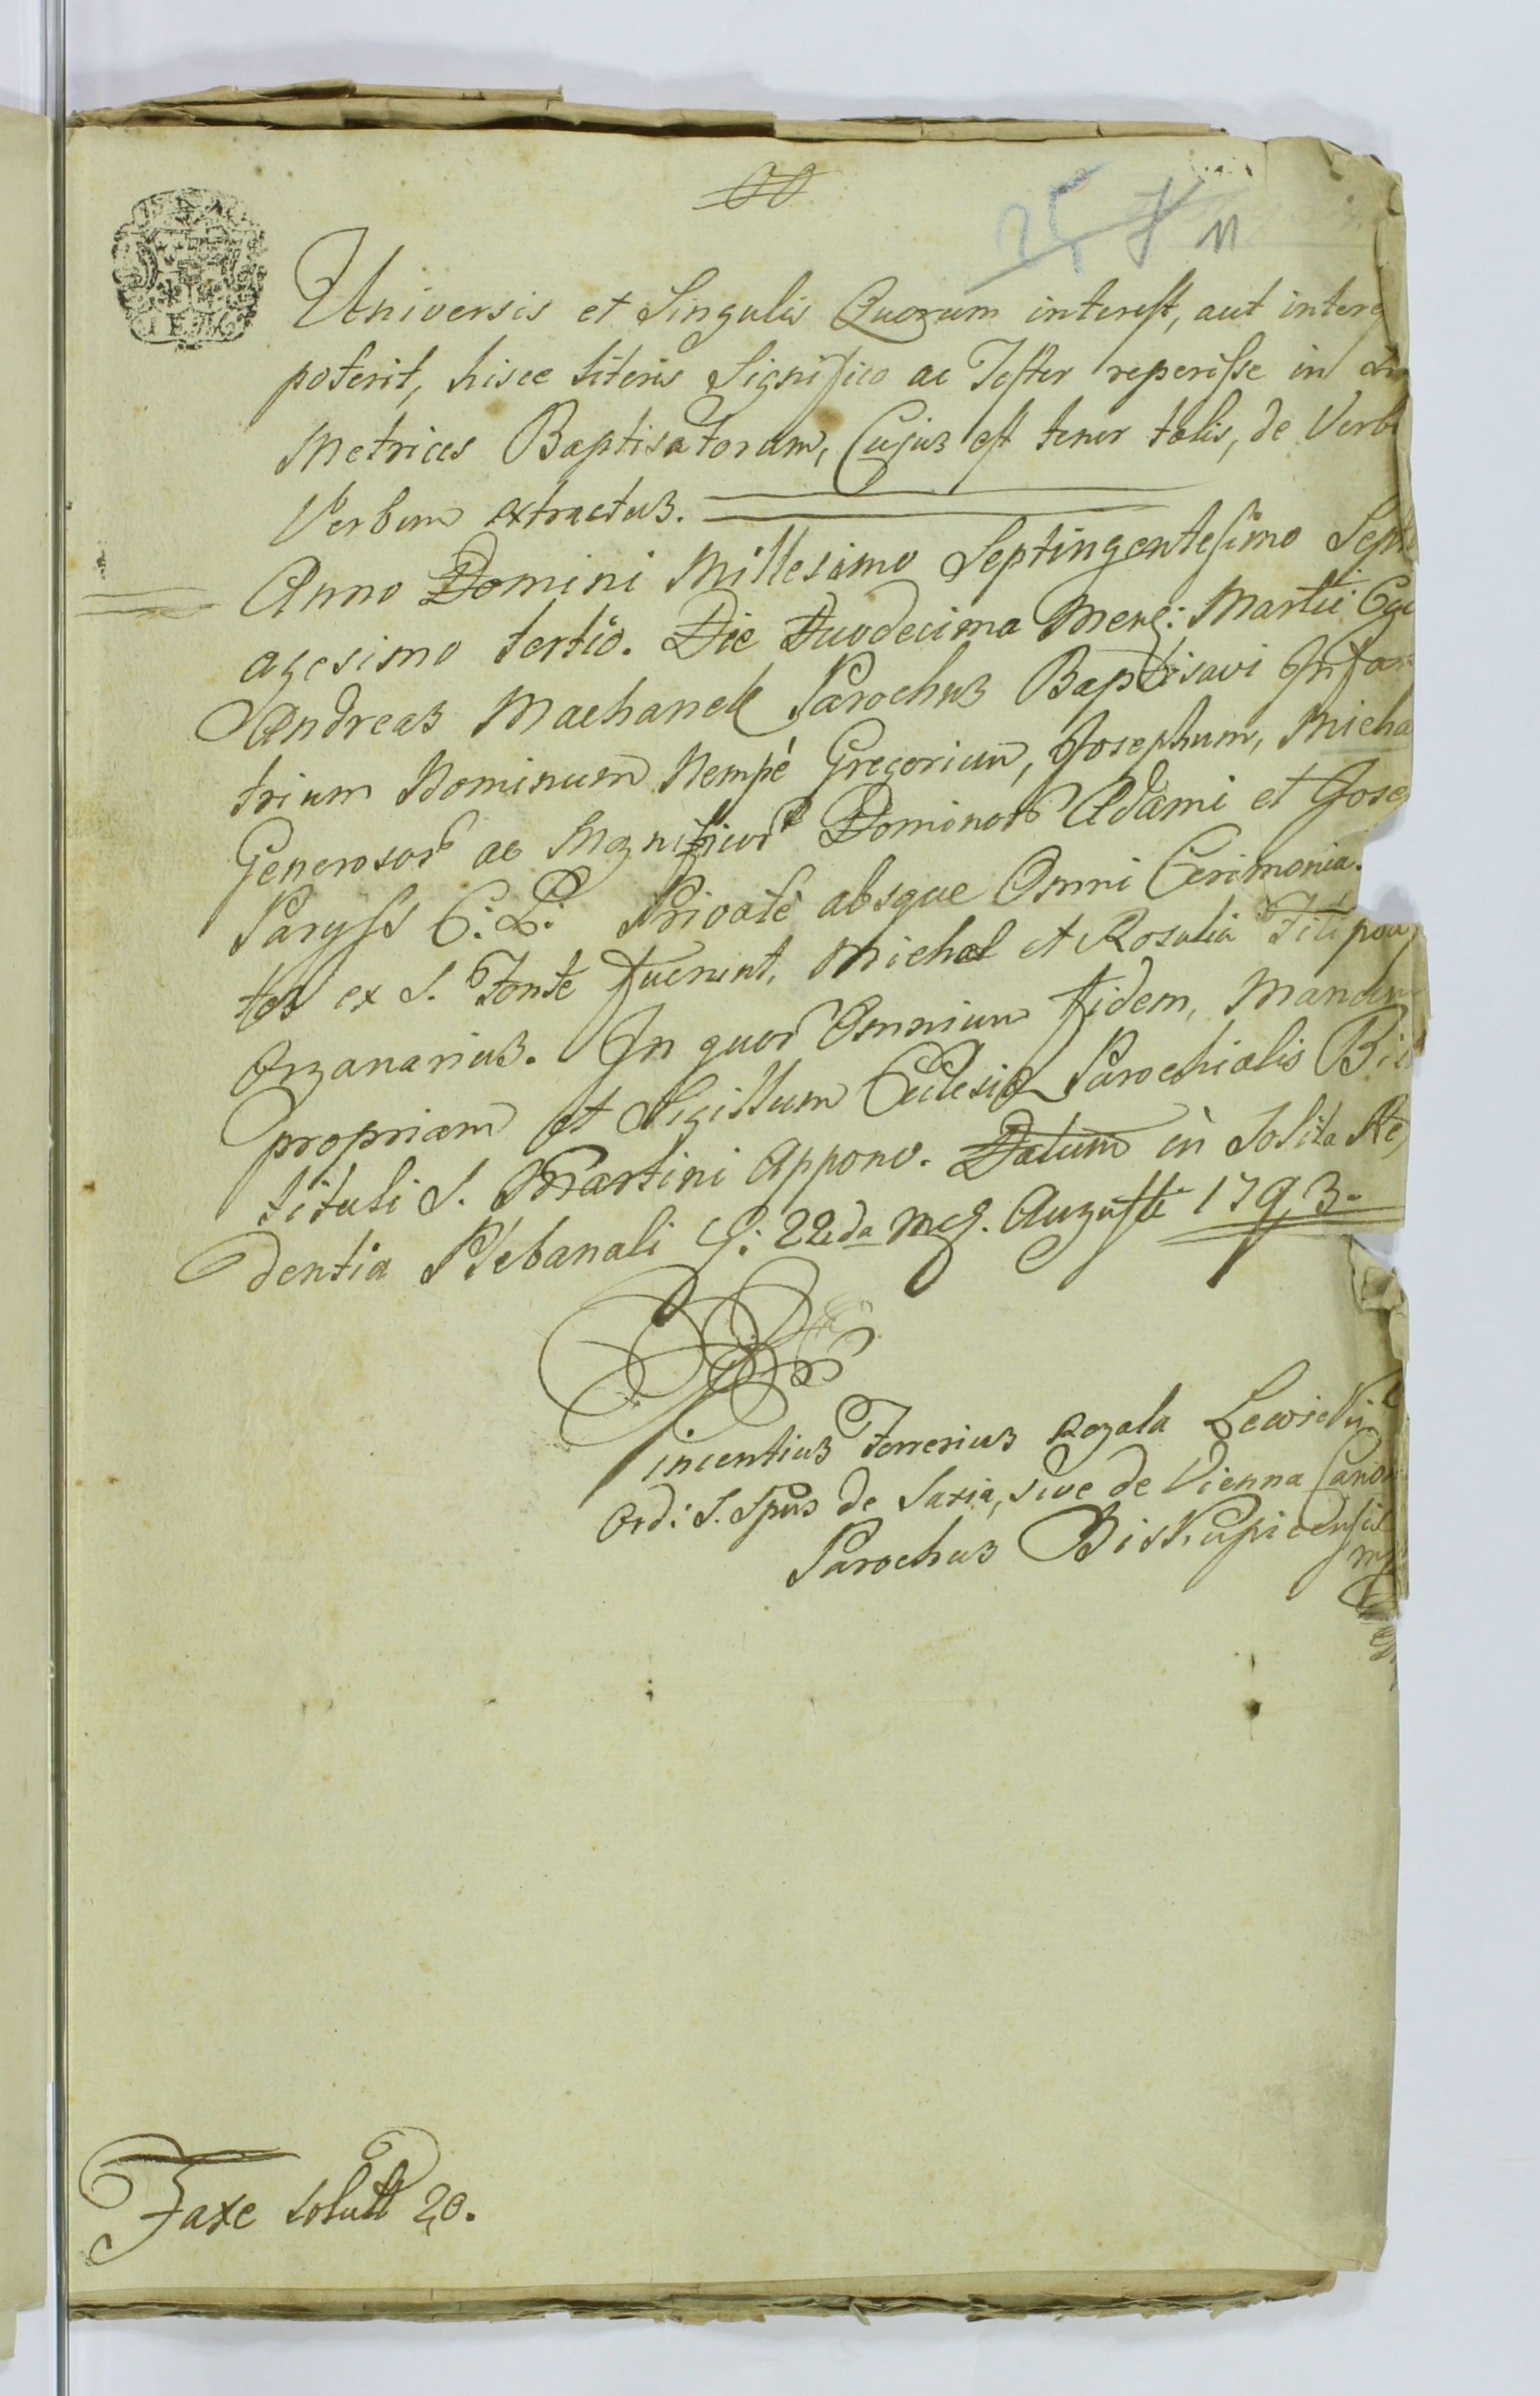 25 11
Universis et Singulis Quorum interest, aut intere
poterit, hisce literis Significo ac Testor reperisse in
Metrices Baptisatorum, Cujus est tenor talis, de Verb
Verbum extractus.
Anno Domini Millesimo Septingentesimo Septu
agesimo tertio. Die Duodecima Mens: Martii Ego
Andreas Machanek Parochus Baptisavi Infan
trium Nominum Nempè Gregorium, Josephum, Micha
Generosor ac Mgnificor Dominor Adami et Jose
Paryss C: L: Privatè absque Omni Cerimonia.
tes ex S. Fonte fuerunt, Michael et Rosalia
Organarius. In quor Omnium fidem, Manum
propriam et Sigillum Ecclesiæ Parochialis Bis
tituli S. Martini Appono. Datum in Solita Re
dentia Plebanali 22da Augusti 1793.
Vincentius Ferrerius Rogala Lewicki
Ord: S. Spus de Saxia, sive de Vienna Canon
Parochus Biskupicensis
mp
Taxe solut 20.